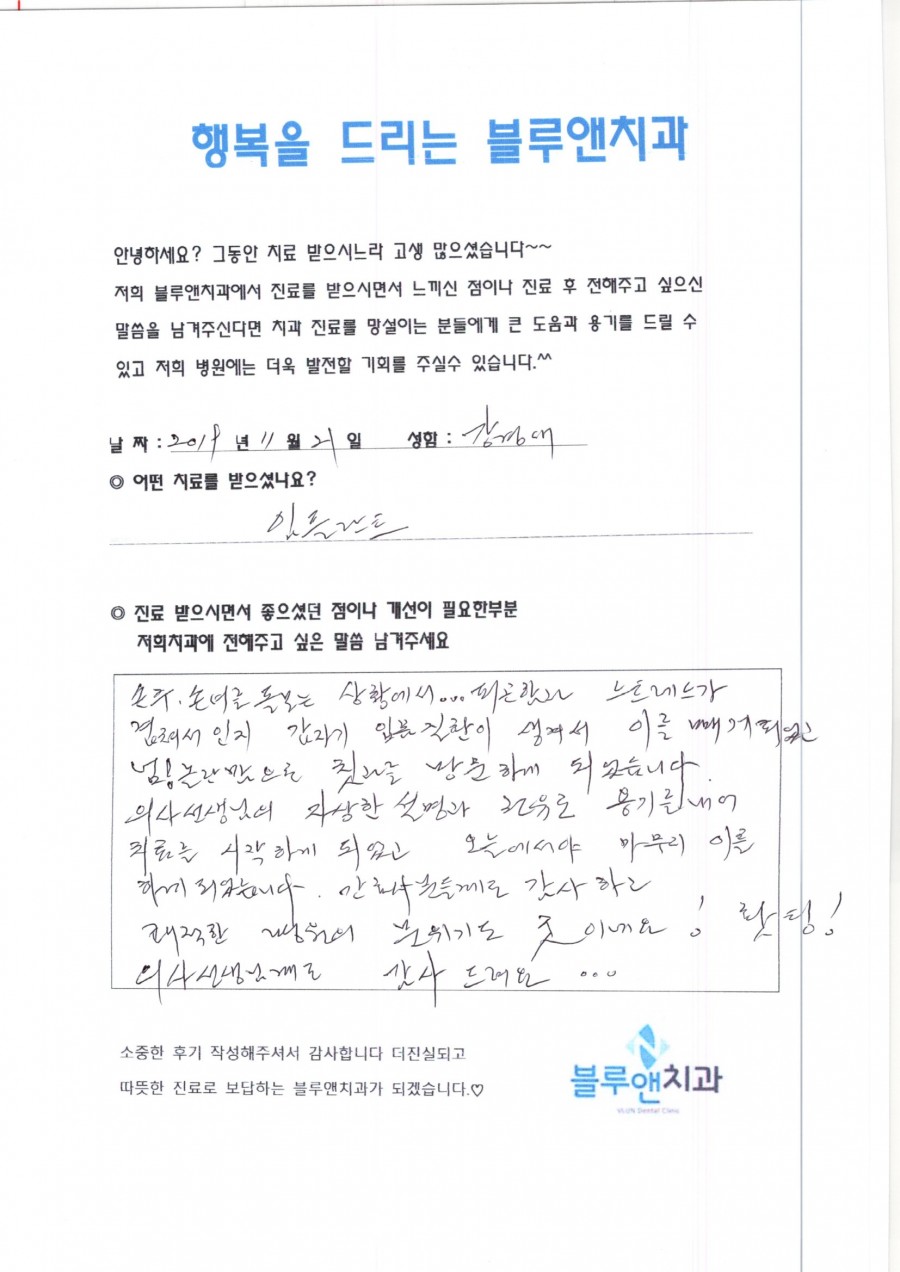 행복을 드리는 블루앤치과
안녕하세요? 그동안 치료 받으시느라 고생 많으셨습니다~~
저희 블루앤치과에서 진료를 받으시면서 느끼신 점이나 진료 후 전해주고 싶으신
말씀을 남겨주신다면 치과 진료를 망설이는 분들에게 큰 도움과 용기를 드릴 수
있고 저희 병원에는 더욱 발전할 기회를 주실수 있습니다.^^
날 짜 : 2019 년 11 월 21 일 성함 :
◎ 어떤 치료를 받으셨나요?
임플란트
◎ 진료 받으시면서 좋으셨던 점이나 개선이 필요한부분
저희치과에 전해주고 싶은 말씀 남겨주세요
손주·손녀를 돌보는 상황에서... 피곤함과 스트레스가
겹쳐서인지 갑자기 잇몸질환이 생겨서 이를 빼게되었고
넘! 놀란맘으로 칫과를 방문하게 되었습니다.
의사선생님의 자상한 설명과 권유로 용기를내어
치료를 시작하게 되었고 오늘에서야 마무리 이를
하게되었습니다. 간호사분들께도 감사하고
쾌적한 병원의 분위기도 굿이네요! 홧팅!
의사선생님께도 감사드려요...
소중한 후기 작성해주셔서 감사합니다 더진실되고
따뜻한 진료로 보답하는 블루앤치과가 되겠습니다.♡
블루앤치과
Dental Clinic